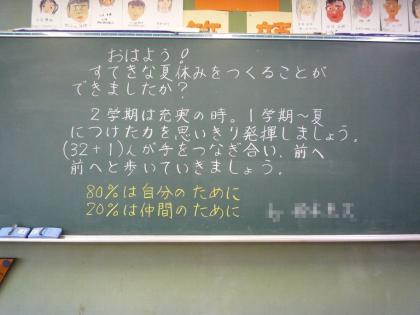 おはよう!
すてきな夏休みをつくることが
できましたか?
2学期は充実の時。1学期～夏
につけた力を思いきり発揮しましょう。
(32+1)人が手をつなぎ合い、前へ
前へと歩いていきましょう。
80%は自分のために
20%は仲間のために
by